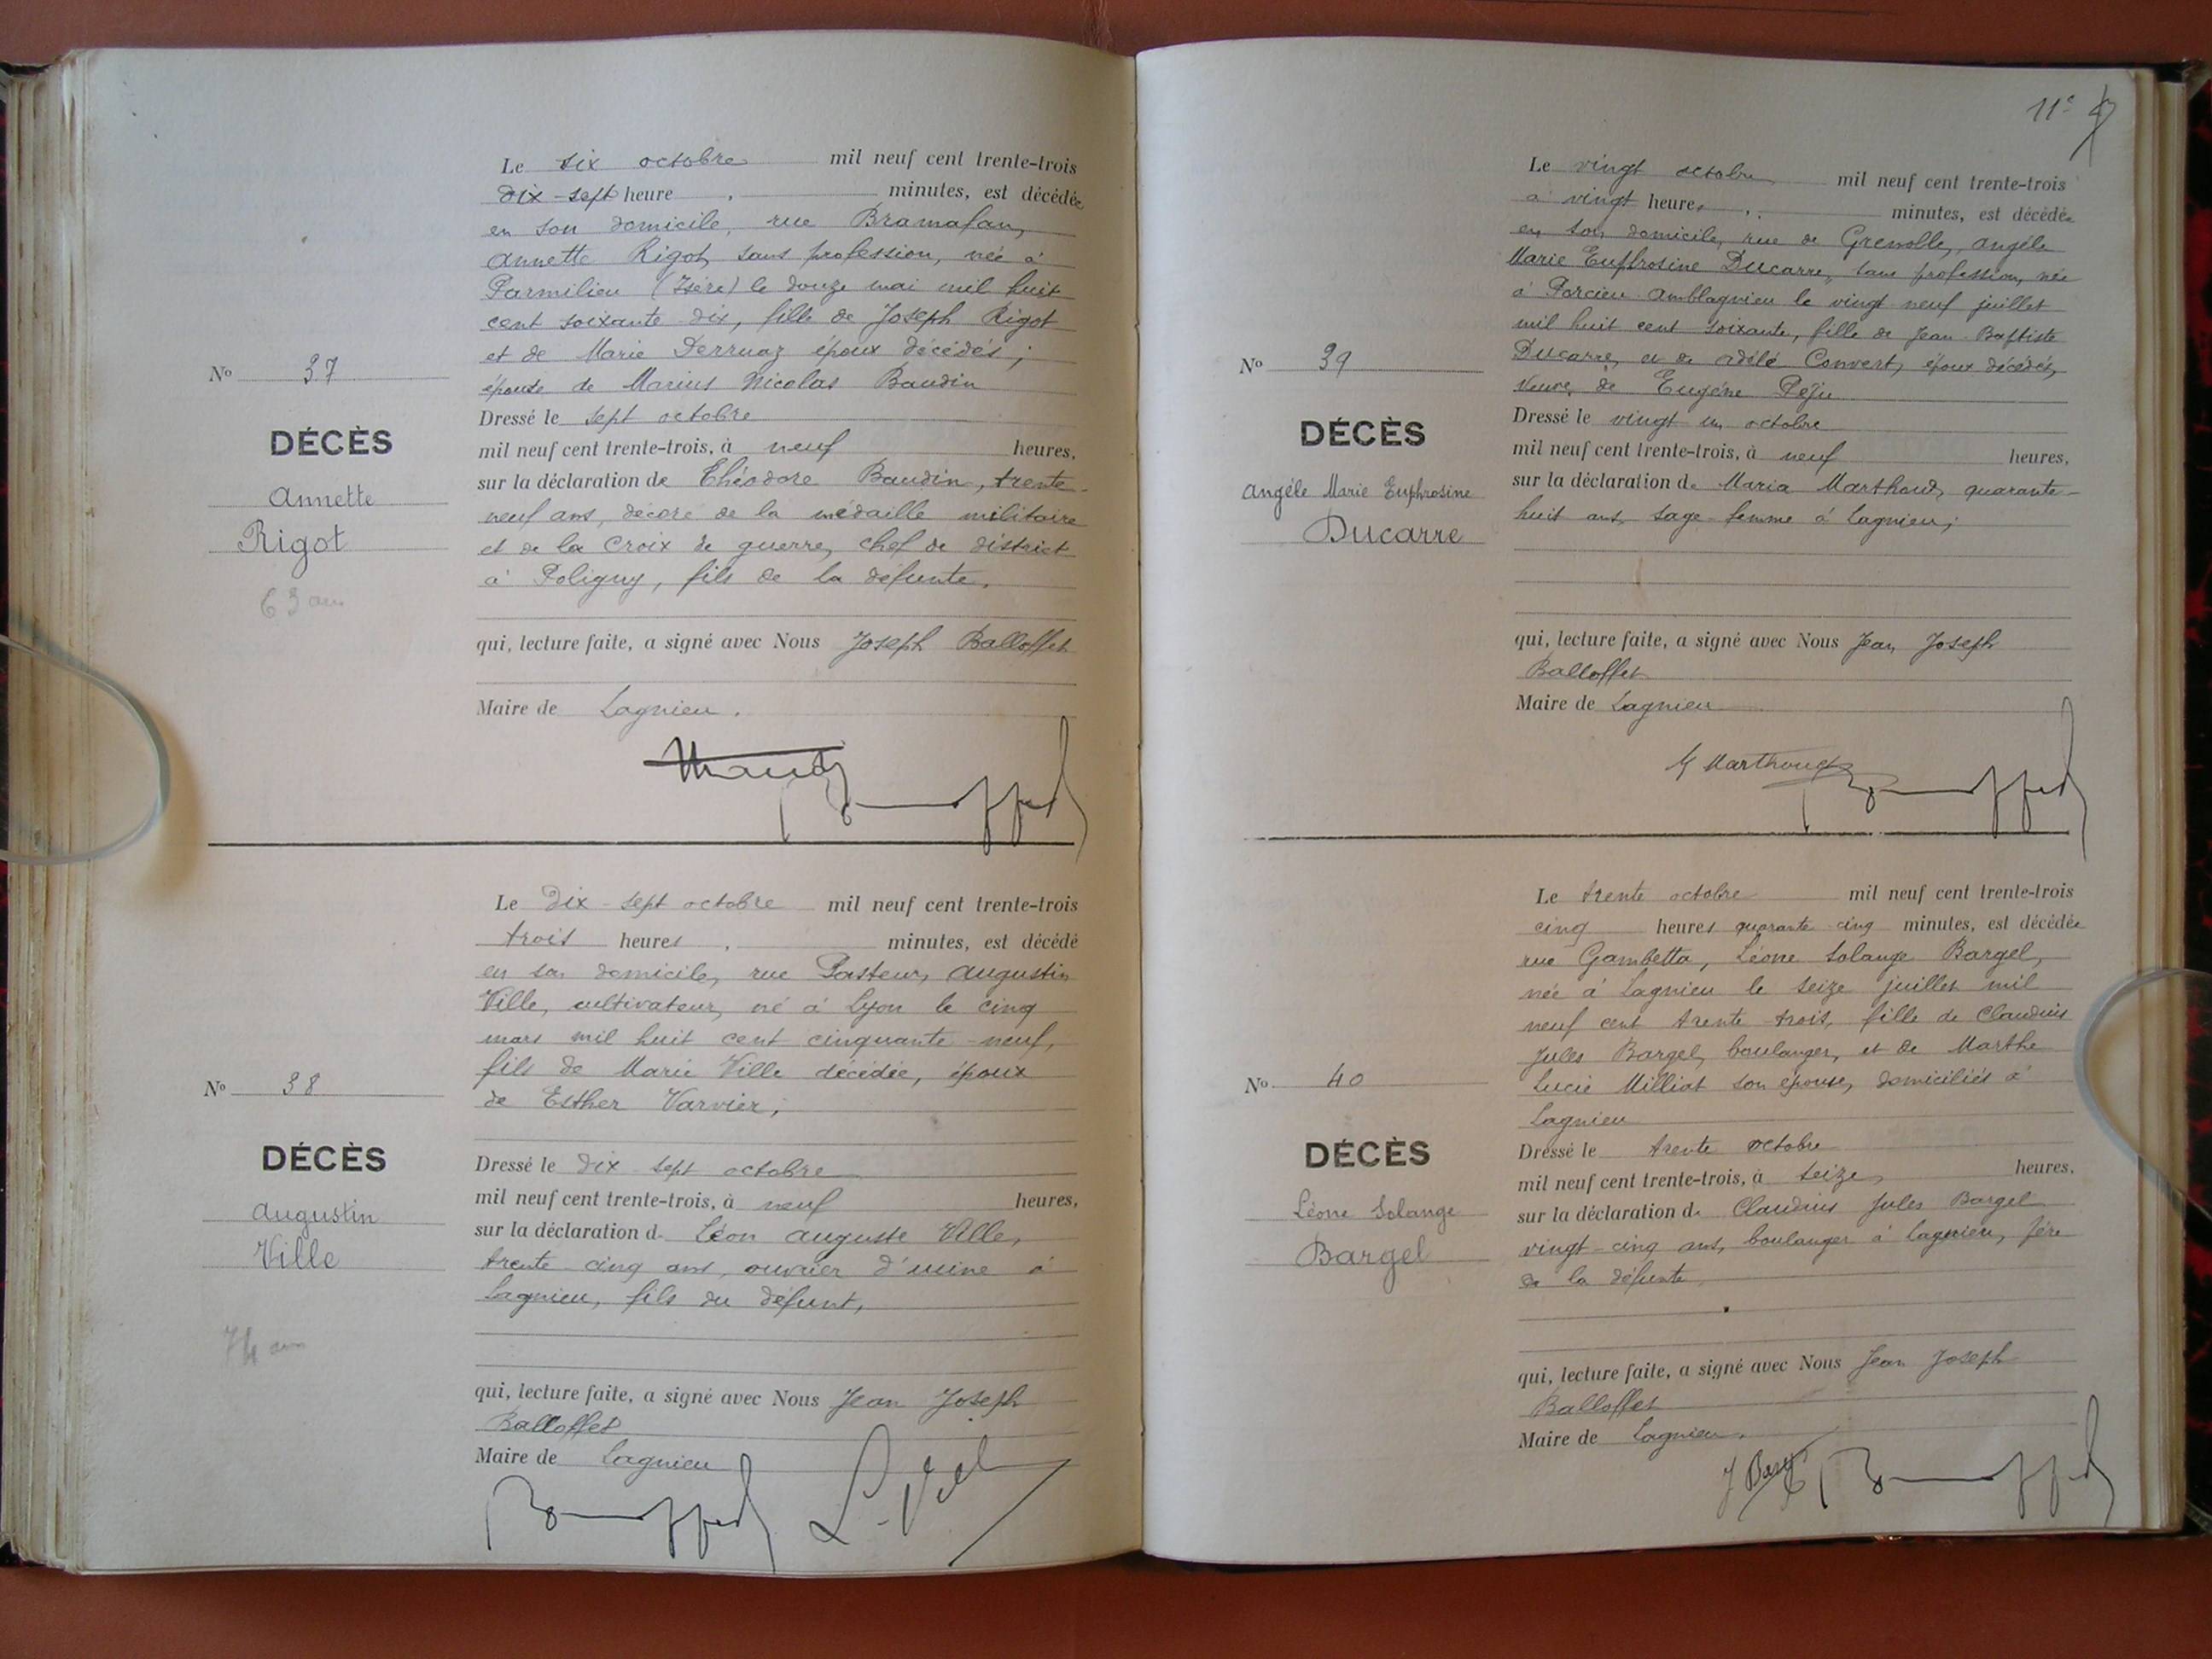 Le six octobre mil neuf cent trente-trois
dix-sept heure , minutes, est décédée
en son domicile, rue Bramafan,
Annette Rigot, sans profession, née à
Parmilieu (Isère) le douze mai mil huit
cent soixante-dix, fille de Joseph Rigot
et de Marie Derruaz époux décédés ;
épouse de Marius Nicolas Baudin
Dressé le sept octobre
mil neuf cent trente-trois, à neuf heures,
sur la déclaration de Théodore Baudin, trente-
neuf ans, décoré de la médaille militaire
et de la Croix de guerre, chef de district
à Poligny, fils de la défunte.
qui, lecture faite, a signé avec Nous Joseph Balloffet
Maire de Lagnieu.
No 37
DÉCÈS
Annette
Rigot
63 ans
Le Dix-sept octobre mil neuf cent trente-trois
trois heures , minutes, est décédé
en son domicile, rue Pasteur, Augustin
Ville, cultivateur, né à Lyon le cinq
mars mil huit cent cinquante-neuf,
fils de Marie Ville décédée, époux
de Esther Varvier,
Dressé le dix-sept octobre
mil neuf cent trente-trois, à neuf heures,
sur la déclaration d. Léon Auguste Ville,
trente-cinq ans, ouvrier d'usine à
Lagnieu, fils du défunt,
qui, lecture faite, a signé avec Nous Jean Joseph
Balloffet
Maire de Lagnieu
L. Ville
No 38
DÉCÈS
Augustin
Ville
74 ans
11e
Le vingt octobre mil neuf cent trente-trois
à vingt heures , minutes, est décédée
en son domicile, rue de Grenoble, Angèle
Marie Euphrosine Ducarre, sans profession, née
à Porcieu-Amblagnieu le vingt neuf juillet
mil huit cent soixante, fille de Jean-Baptiste
Ducarre, et de Adèle Convert, époux décédés,
veuve de Eugène Péju
Dressé le vingt un octobre
mil neuf cent trente-trois, à neuf heures,
sur la déclaration d. Maria Marthoud, quarante-
huit ans, sage-femme à Lagnieu ;
qui, lecture faite, a signé avec Nous Jean Joseph
Balloffet
Maire de Lagnieu
M Marthoud
No 39
DÉCÈS
Angèle Marie Euphrosine
Ducarre
Le trente octobre mil neuf cent trente-trois
cinq heures quarante-cinq minutes, est décédée
rue Gambetta, Léone Solange Bargel,
née à Lagnieu le seize juillet mil
neuf cent trente trois, fille de Claudius
Jules Bargel, boulanger, et de Marthe
Lucie Milliat son épouse, domiciliés à
Lagnieu
Dressé le trente octobre
mil neuf cent trente-trois, à seize heures,
sur la déclaration d. Claudius Jules Bargel
vingt-cinq ans, boulanger à Lagnieu, père
de la défunte.
qui, lecture faite, a signé avec Nous Jean Joseph
Balloffet
Maire de Lagnieu.
No 40
DÉCÈS
Léone Solange
Bargel